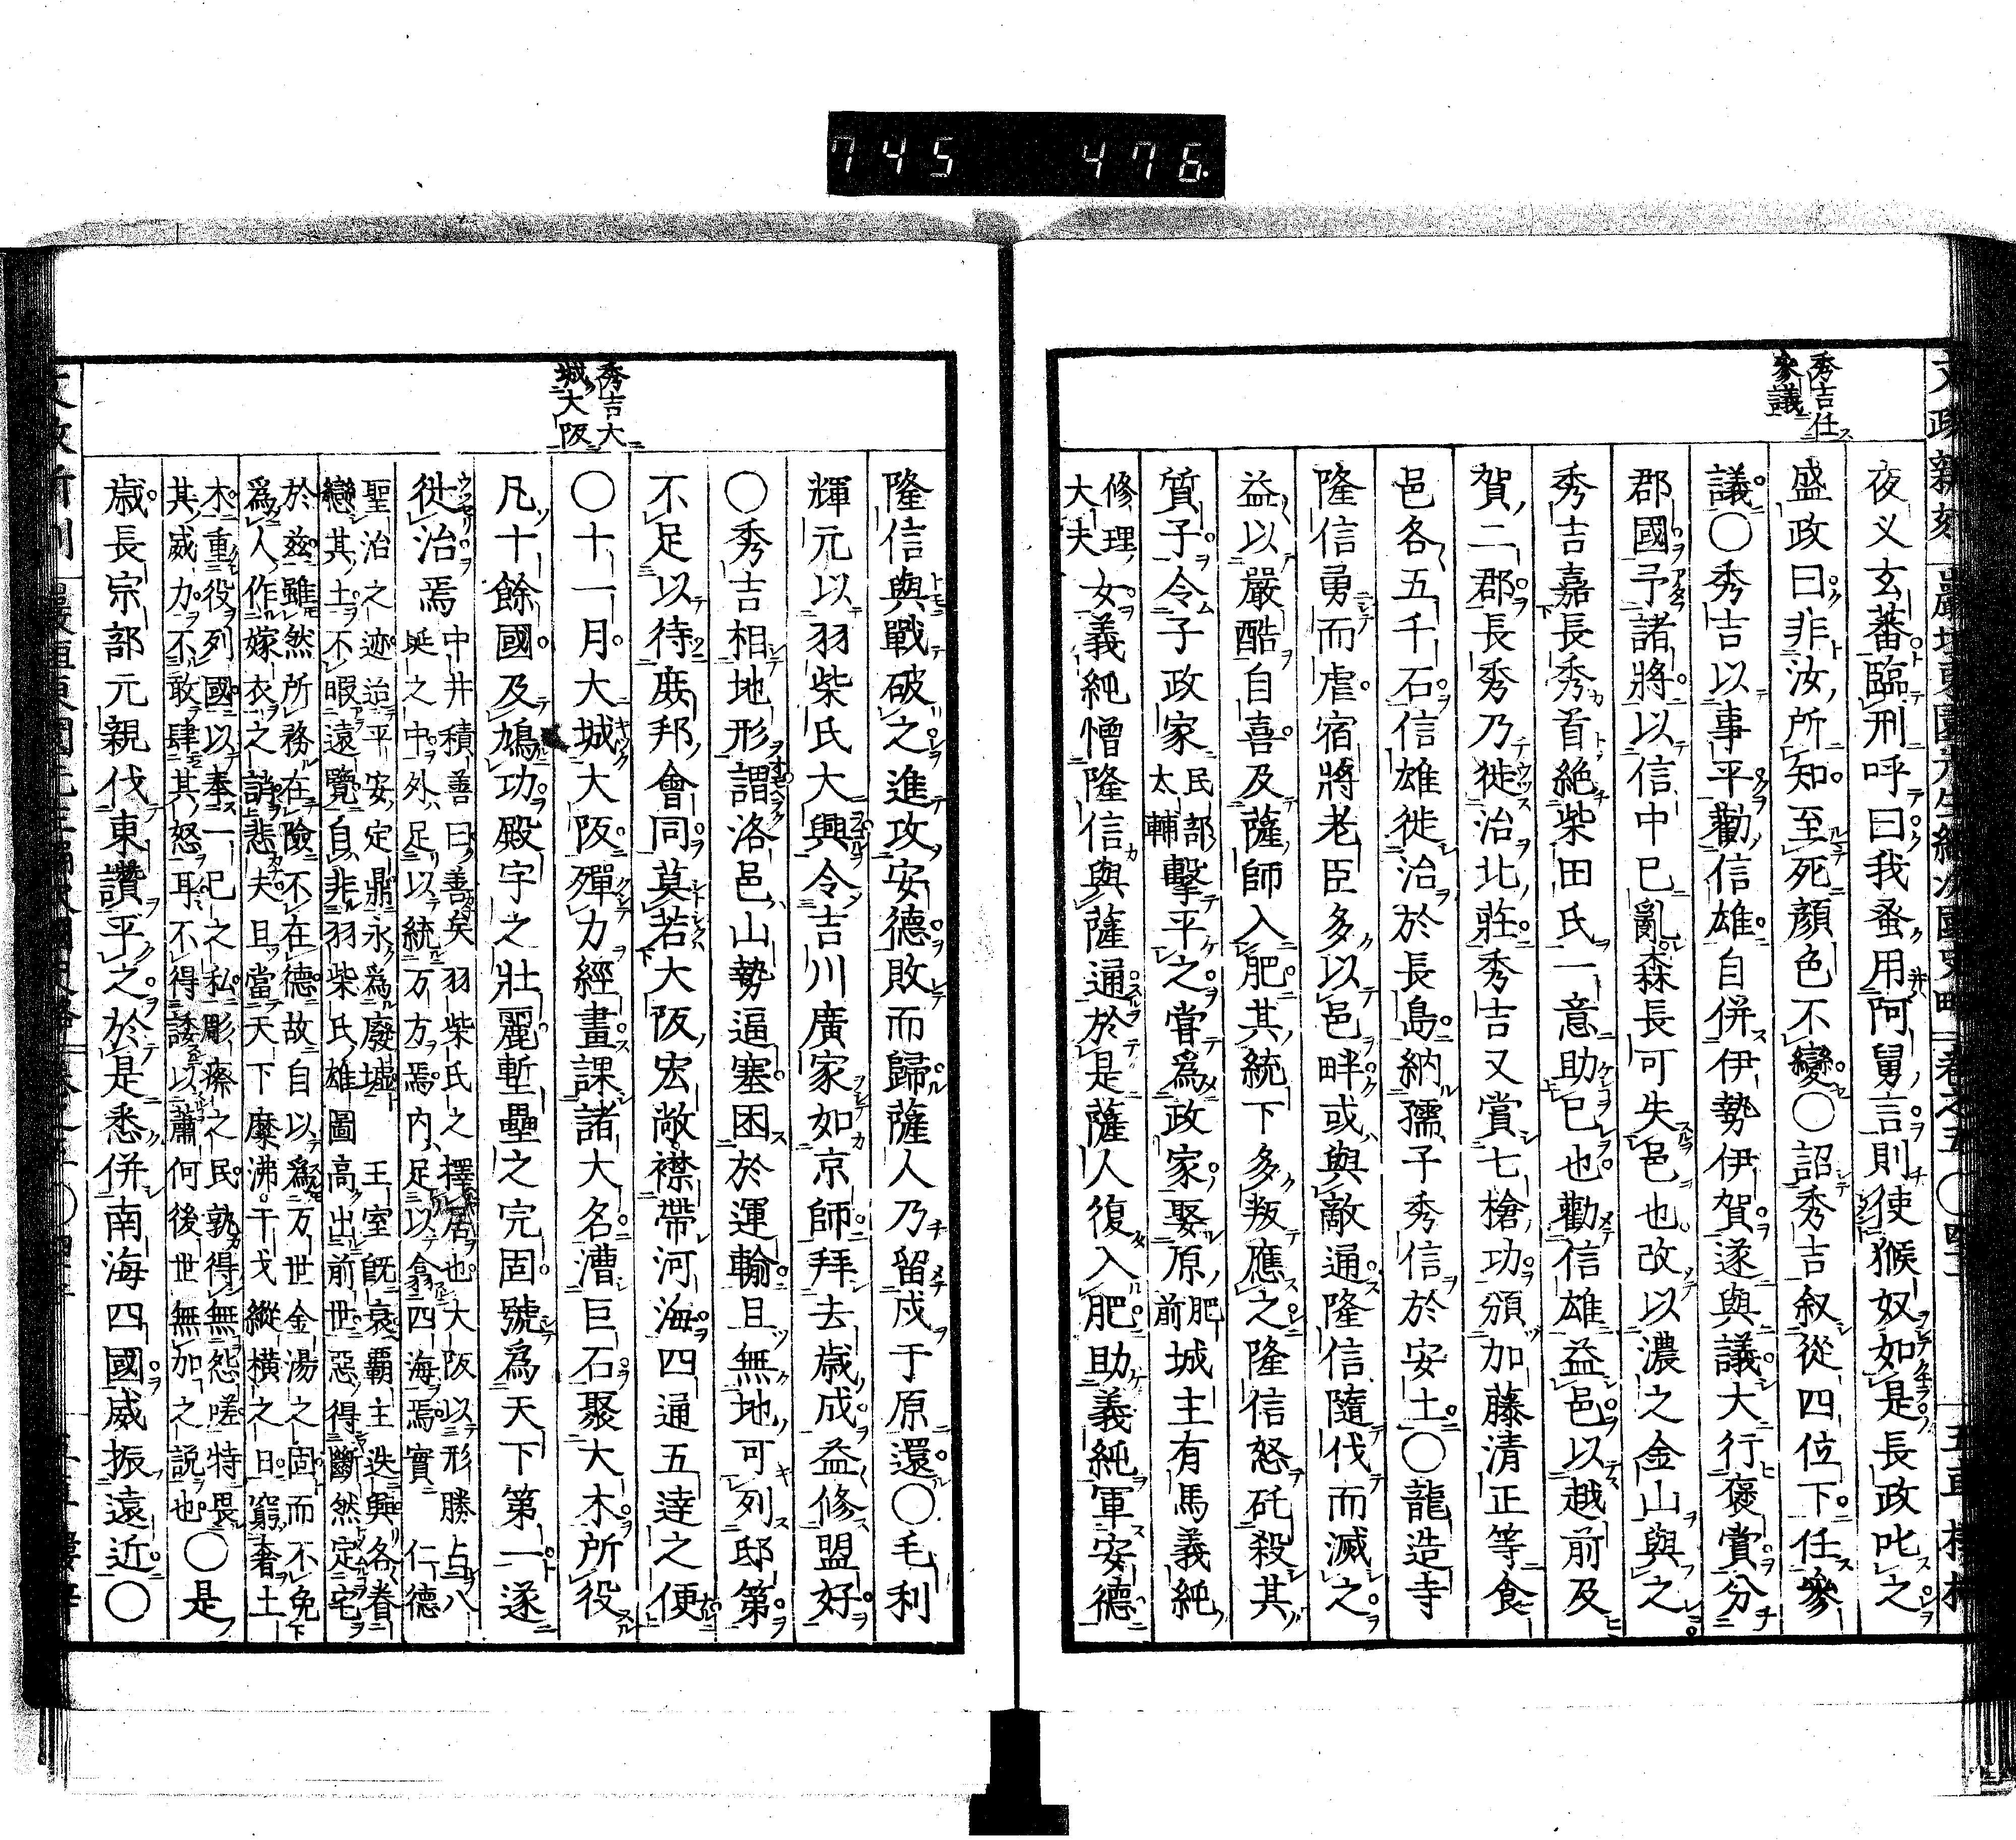 745 476.
秀吉任
參議
夜叉玄蕃臨刑呼曰我蚤用阿舅言則使猴奴如是長政叱之
盛政曰非汝所知至死顏色不變○詔秀吉叙從四位下任參
議○秀吉以事平勸信雄自併伊勢伊賀遂與議大行褒賞分
郡國予諸將以信中巳亂森長可失邑也改以濃之金山與之
秀吉嘉長秀首絶柴田氏一意助已也勸信雄益邑以越前及
賀二郡長秀乃徙治北莊秀吉又賞七槍功頒加藤清正等食
邑各五千石信雄徙治於長島納孺子秀信於安土○龍造寺
隆信勇而虐宿將老臣多以邑畔或與敵通隆信隨伐而滅之
益以嚴酷自喜及薩師入肥其統下多叛應之隆信怒矺殺其
質子令子政家民部太輔擊平之嘗爲政家娶原肥前城主有馬義純
修理大夫女義純憎隆信與薩通於是薩人復入肥助義純軍安德
秀吉大
城大阪
隆信與戰破之進攻安德敗而歸薩人乃留戍于原還○毛利
輝元以羽柴氏大興令吉川廣家如京師拜去歲成益修盟好
○秀吉相地形謂洛邑山勢逼塞困於運輸且無地可列邸第
不足以待庶邦會同莫若大阪宏敞襟帶河海四通五達之便
○十一月大城大阪殫力經畫課諸大名漕巨石聚大木所役
凡十餘國及鳩功殿宇之壯麗塹壘之完固號爲天下第一遂
徙治焉中井積善曰善矣羽柴氏之擇居也大阪以形勝占八
延之中外足以統万方焉内足以翕四海焉實仁德
聖治之迹迨平安定鼎永爲廢墟王室既衰覇主迭興各眷
戀其土不暇遠覽自非羽柴氏雄圖高出前世惡得斷然定宅
於茲雖然所務在險不在德故自以爲万世金湯之固而不免
爲人作嫁衣之誚悲夫且當天下糜沸干戈縱橫之日窮奢土
木重役列國以奉一已之私彫瘵之民孰得無怨嗟特畏
其威力不敢肆其怒耳不得諉以蕭何後世無加之説也○是
歲長宗部元親伐東讚平之於是悉併南海四國威振遠近○